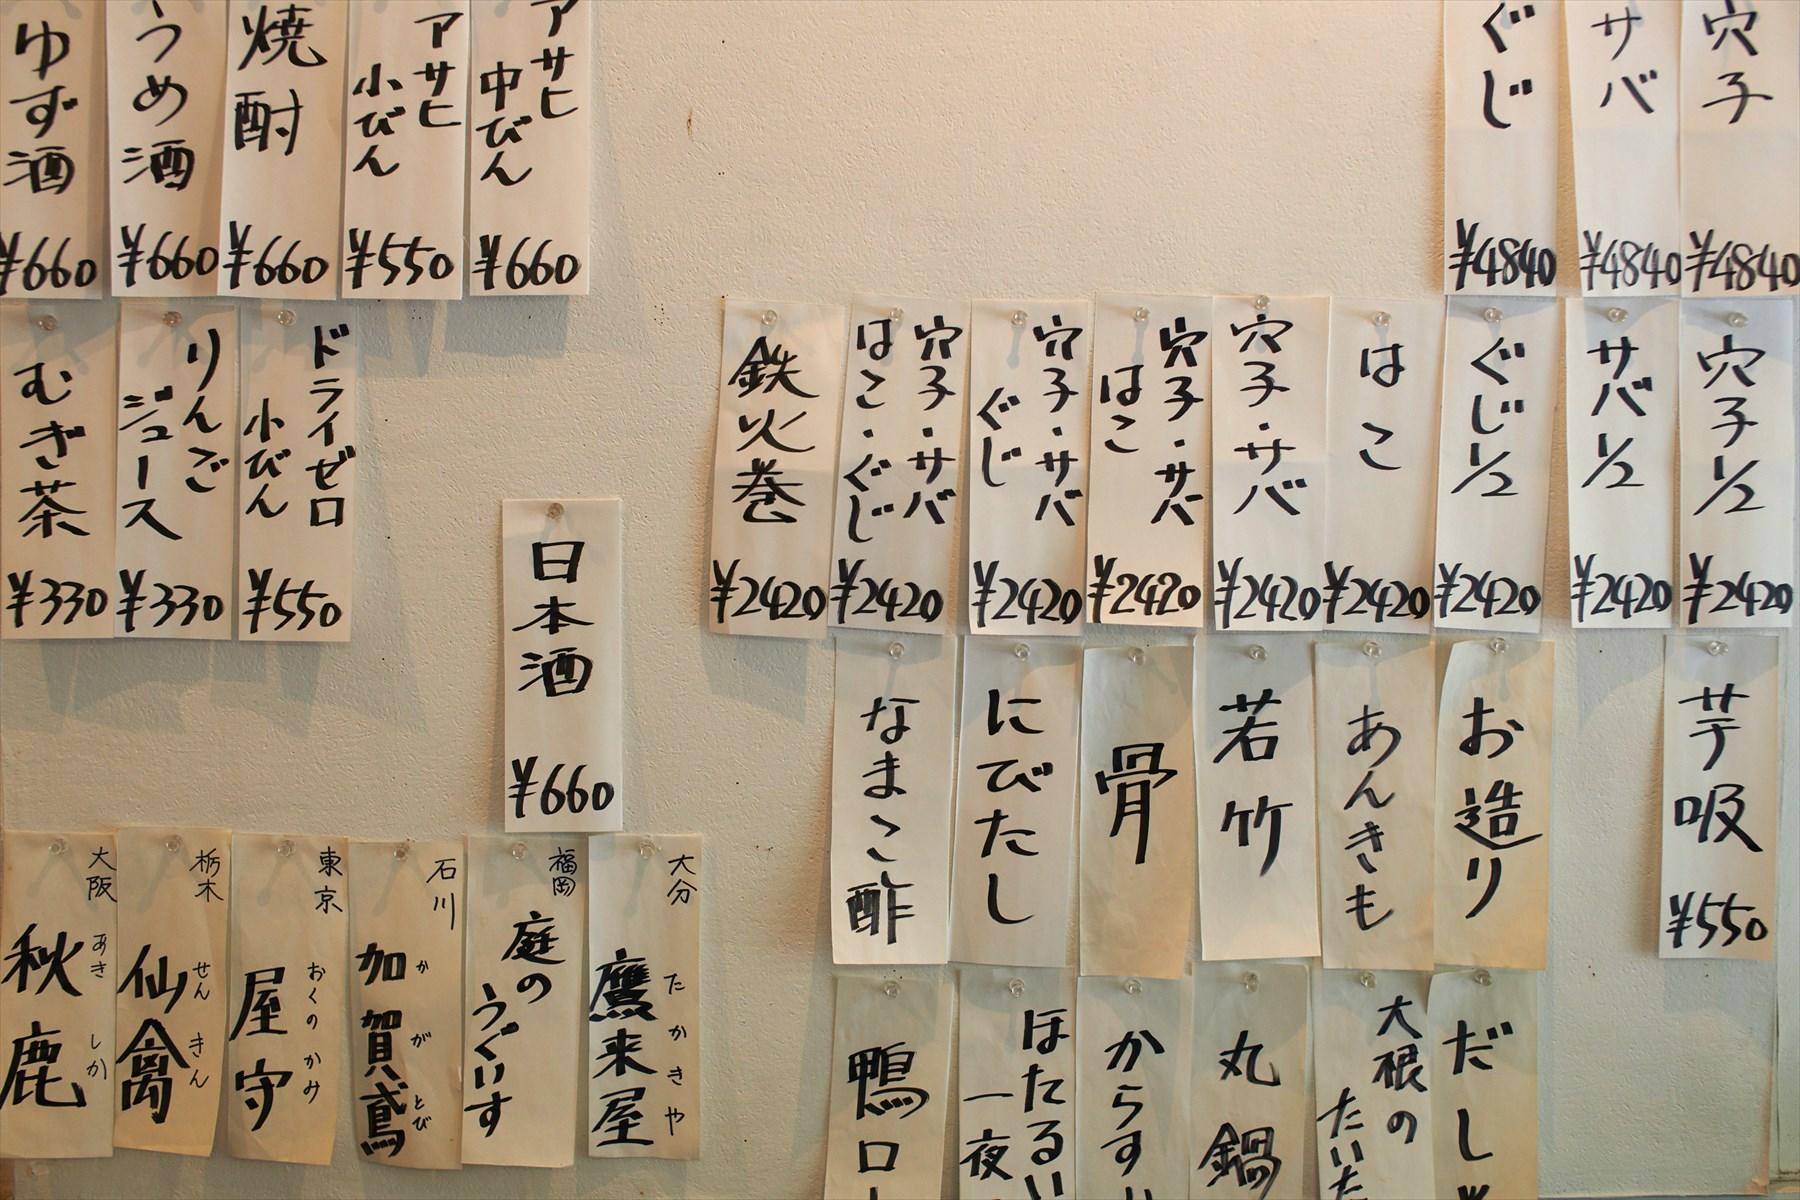 穴子
¥4840
サバ
¥4840
ぐじ
¥4840
アサヒ
中びん
¥660
アサヒ
小びん
¥550
焼酎
¥660
うめ酒
¥660
ゆず酒
¥660
穴子1/2
¥2420
サバ1/2
¥2420
ぐじ1/2
¥2420
はこ
¥2420
穴子・サバ
¥2420
穴子・サバ
はこ
¥2420
穴子・サバ
ぐじ
¥2420
穴子・サバ
はこ・ぐじ
¥2420
鉄火巻
¥2420
ドライゼロ
小びん
¥550
りんご
ジュース
¥330
むぎ茶
¥330
日本酒
¥660
芋吸
¥550
お造り
あんきも
若竹
骨
にびたし
なまこ酢
大分
鷹来屋
たかきや
福岡
庭の
うぐいす
石川
加賀鳶
かがとび
東京
屋守
おくのかみ
栃木
仙禽
せんきん
大阪
秋鹿
あきしか
だし
大根の
たいた
丸鍋
からす
ほたるい
一夜
鴨ロ